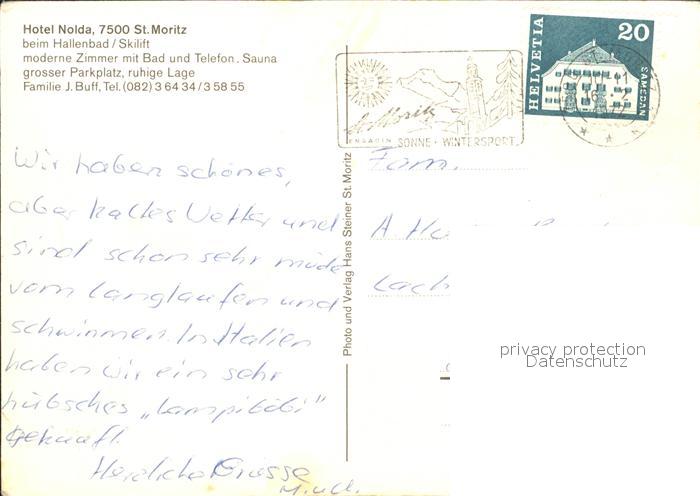 Hotel Nolda, 7500 St. Moritz
beim Hallenbad / Skilift
moderne Zimmer mit Bad und Telefon. Sauna
grosser Parkplatz, ruhige Lage
Familie J. Buff, Tel. (082) 3 64 34 / 3 58 55
St. Moritz
ENGADIN SONNE + WINTERSPORT
HELVETIA
20
SAMEDAN
Wir haben schönes,
aber kaltes Wetter und
sind schon sehr müde
vom Langlaufen und
schwimmen. In Italien
haben wir ein sehr
hübsches „Lampitöbi"
gekauft.
Herzliche Grüsse
M. und
Photo und Verlag Hans Steiner St. Moritz
Fam.
A.
privacy protection
Datenschutz